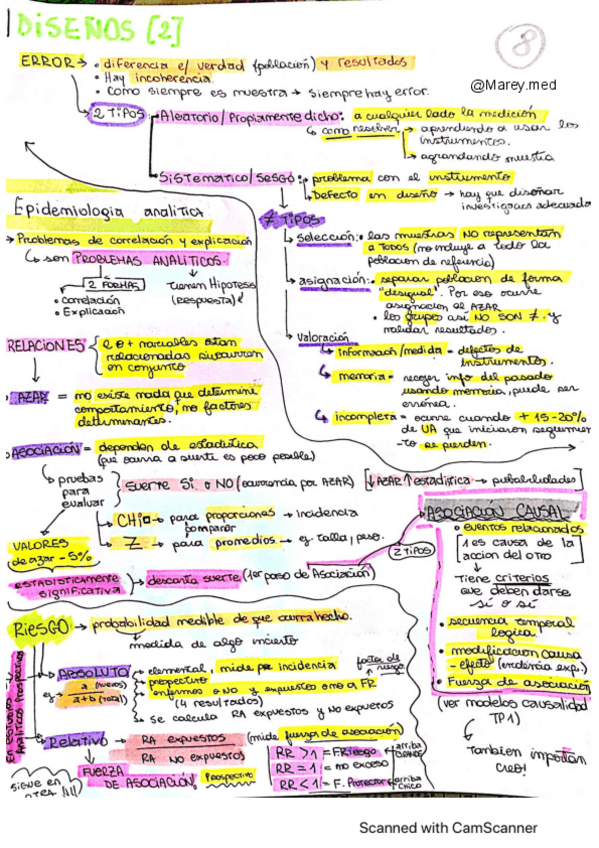 DISEÑOS [2]
8
@Marey.med
ERROR → • diferencia e/ verdad (población) y resultados
• Hay incoherencia.
• Como siempre es muestra → siempre hay error.
2 TIPOS
Aleatorio/Propiamente dicho: a cualquier lado la medición
↳ como resolver → aprendiendo a usar los instrumentos.
→ agrandando muestra
Sistematico/Sesgo: problema con el instrumento.
↳ Defecto en diseño → hay que diseñar
investigaciones adecuada
≠ TIPOS
↳ selección: • las muestras NO representan
a TODOS (no incluye a todo la
poblacion de referencia)
→ asignación: • separar poblacion de forma
"desigual". Por eso ocurre
asignacion al AZAR
• los grupos asi NO SON ≠. y
validar resultados.
↳ Valoración
↳ Informacion/medida = defectos de
instrumentos.
↳ memoria = recoger info del pasado
usando memoria, puede ser
errónea.
↳ incompleta = ocurre cuando + 15-20%
de UA que iniciaron seguimien
-to se pierden.
Epidemiologia analitica
→ Problemas de correlación y explicación
↳ son PROBLEMAS ANALITICOS.
2 FORMAS
• Correlación
• Explicación
Tienen Hipotesis
(respuesta)
RELACIONES
2 o + variables estan
relacionadas si ocurren
en conjunto
AZAR = no existe nada que determine
comportamiento, no factores
determinantes.
ASOCIACION = dependen de estadistica
(que ocurra a suerte es poco posible)
↳ pruebas
para
evaluar
suerte SI o NO (ocurrencia por AZAR)
[↓AZAR ↑estadística → probabilidades]
→ CHI□ → para proporciones → incidencia
comparar
→ Z → para promedios → ej. talla, peso.
VALORES
de azar - 5%
ESTADISTICAMENTE
significativa
→ descarta suerte (1er paso de Asociación)
2 TIPOS
ASOCIACION CAUSAL
• eventos relacionados
[1 es causa de la
accion del otro
Tiene criterios
que deben darse
sí o sí
• secuencia temporal
logica
• modificacion causa
- efecto (evidencia exp.)
• Fuerza de asociación
(ver modelos causalidad
TP1)
↳ Tambien importan
creo!
RIESGO → probabilidad medible de que ocurra hecho.
↳ medida de algo incierto
En estudios
Analiticos Prospectivos
ABSOLUTO
ej a (nuevos)
a+b (total)
→ elemental, mide por incidencia
→ prospectivo
→ enfermos o NO y expuestos o no a FR
factor de riesgo
(4 resultados)
↳ se calcula RA expuestos y NO expuestos
Relativo → RA expuestos (mide fuerza de asociación)
RA NO expuestos
↳ FUERZA
DE ASOCIACIÓN. Prospectivo
RR > 1 = F. Riesgo
arriba GRANDE
RR = 1 = no exceso
RR < 1 = F. Protector
arriba CHICO
SIGUE EN
OTRA
Scanned with CamScanner